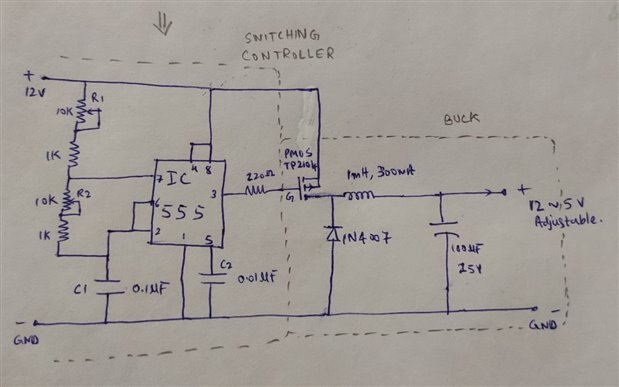 SWITCHING
CONTROLLER
+
12V
10K R1
1K
10K R2
1K
IC
555
7
6
2
4 8
3
1 5
220Ω
PMOS
TP2104
G
BUCK
1mH, 300mA
1N4007
100µF
25V
+
12 ~ 5V
Adjustable.
C1 0.1µF
C2
0.01µF
-
GND
-
GND